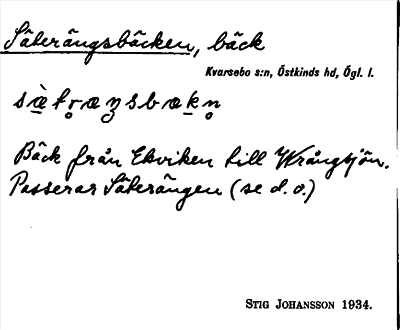 Säterängsbäcken, bäck
Kvarsebo s:n, Östkinds hd, Ögl. l.
Bäck från Ekviken till Vrångsjön.
Passerar Säterängen (se d. o.)
STIG JOHANSSON 1934.